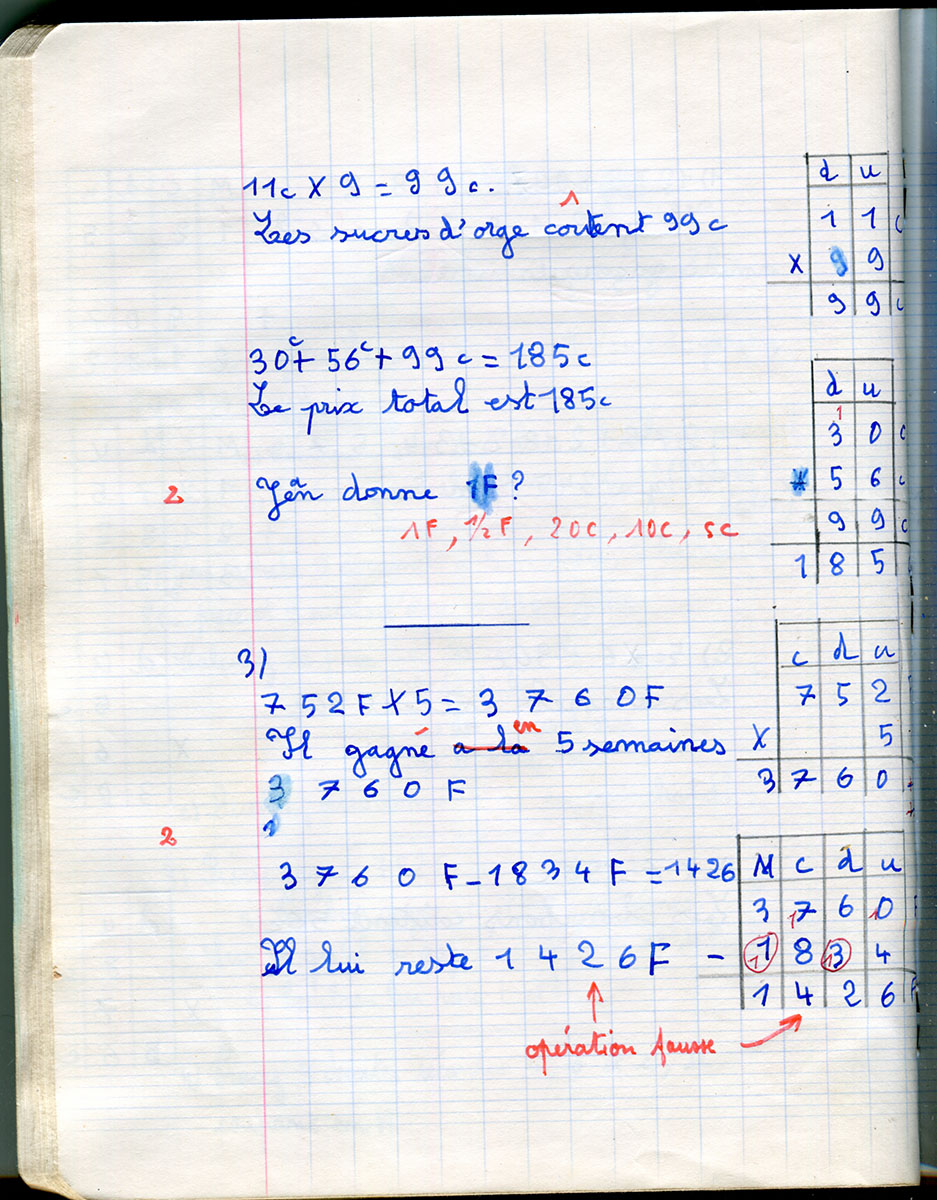 11c x 9 = 99c.
Les sucres d'orge coutent 99c
d u
1 1 c
x 9 9
9 9 c
30c + 56c + 99c = 185c
Le prix total est 185c
d u
1
3 0 c
5 6 c
9 9 c
1 8 5
2 J'en donne 1F ?
1F, 1/2F, 20c, 10c, 5c
3)
752F x 5 = 3760F
Il gagné a la en 5 semaines
3760F
c d u
7 5 2
x 5
3 7 6 0
2
3760F - 1834F = 1426
Il lui reste 1426F
M c d u
3 17 6 10 F
- 11 8 13 4
1 4 2 6 F
opération fausse